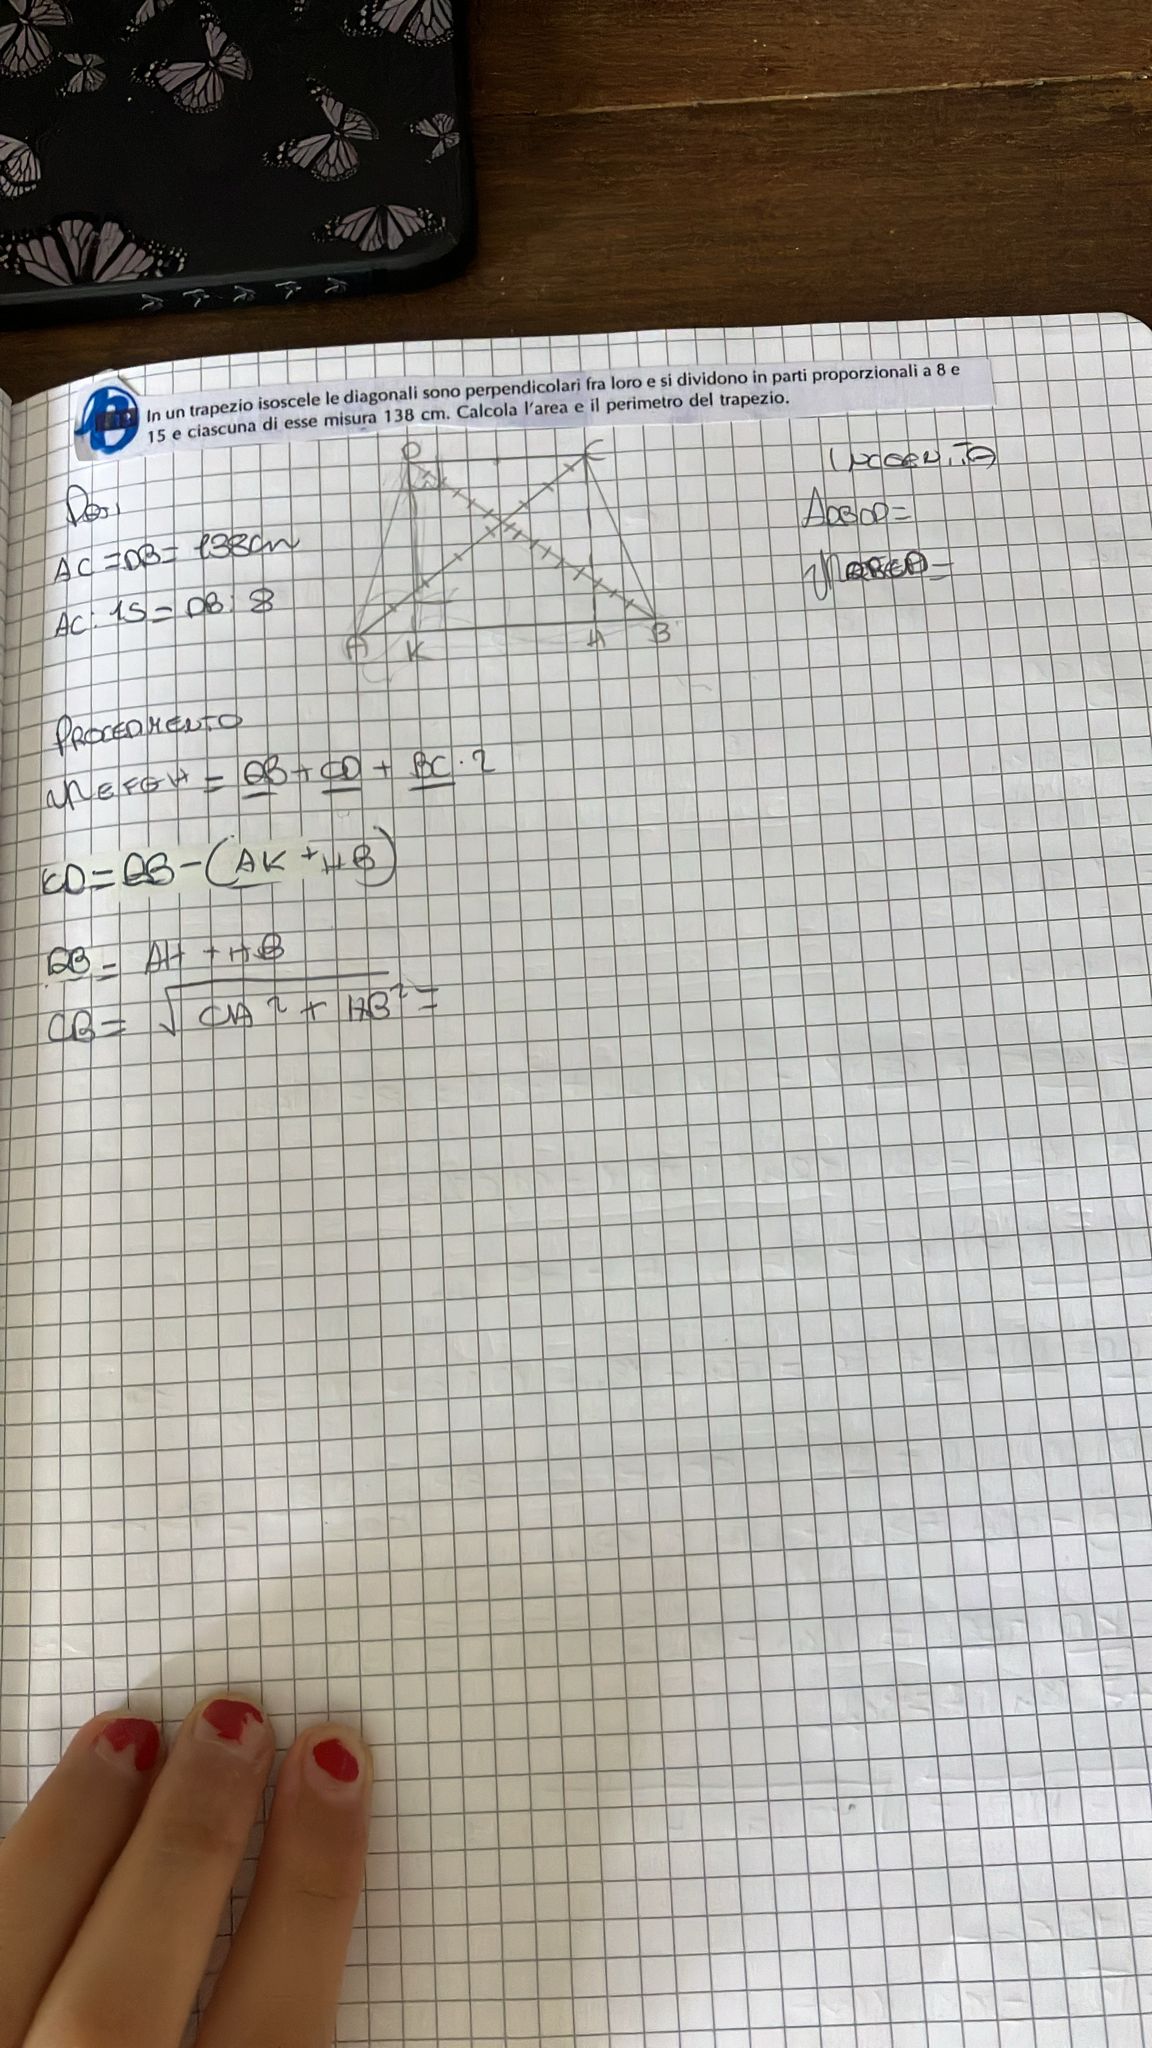 In un trapezio isoscele le diagonali sono perpendicolari fra loro e si dividono in parti proporzionali a 8 e
15 e ciascuna di esse misura 138 cm. Calcola l'area e il perimetro del trapezio.
D C
AC = DB = 138cm
AC : 15 = DB : 8
A K H B
PROCEDIMENTO
= AB + CD + BC · 2
CD = AB - (AK + HB)
AB = AH + HB
CB = √CH² + HB² =